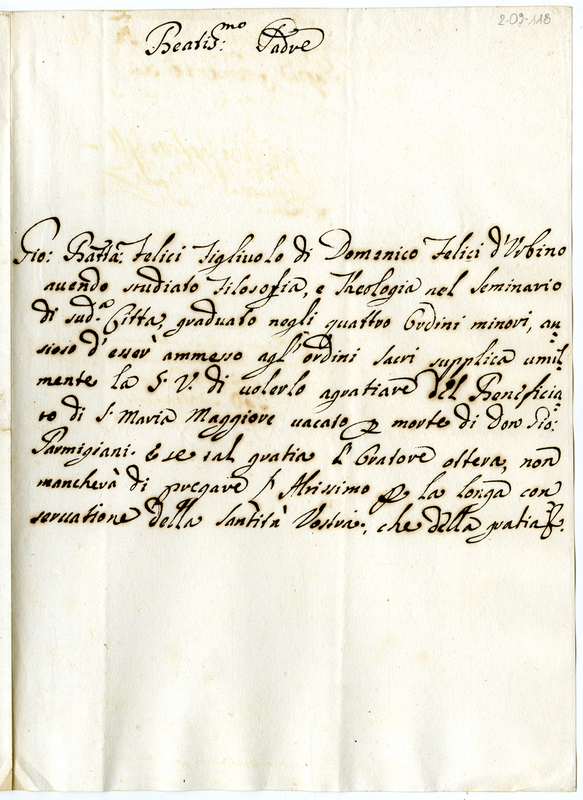 2-09-118
Beatis:mo Padre
Gio: Batta: Felici Figliuolo di Domenico Felici d'Urbino
auendo studiato Filosofia, e Theologia nel Seminario
di sud:a Citta, graduato negli quattro Ordini minori, an=
sioso d'esser ammesso agl'ordini sacri supplica umil=
mente la S. V. di uolerlo agratiare del Beneficia=
to di S. Maria Maggiore uacato p morte di Don Gio:
Parmigiani. E se tal gratia l'Oratore ottera, non
mancherà di pregare l'Altissimo p la longa con
seruatione della Santità Vostra, che della gratia